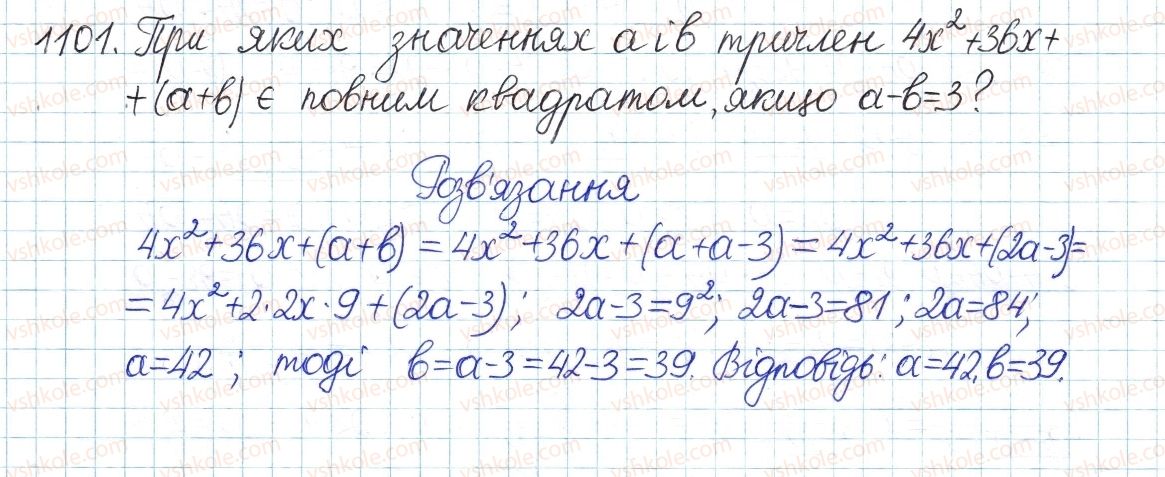 1101. При яких значеннях a і b тричлен 4x²+36x+
+(a+b) є повним квадратом, якщо a-b=3?
Розв'язання
4x²+36x+(a+b) = 4x²+36x+(a+a-3) = 4x²+36x+(2a-3)=
=4x²+2·2x·9+(2a-3); 2a-3=9²; 2a-3=81; 2a=84;
a=42; тоді b=a-3=42-3=39. Відповідь: a=42, b=39.